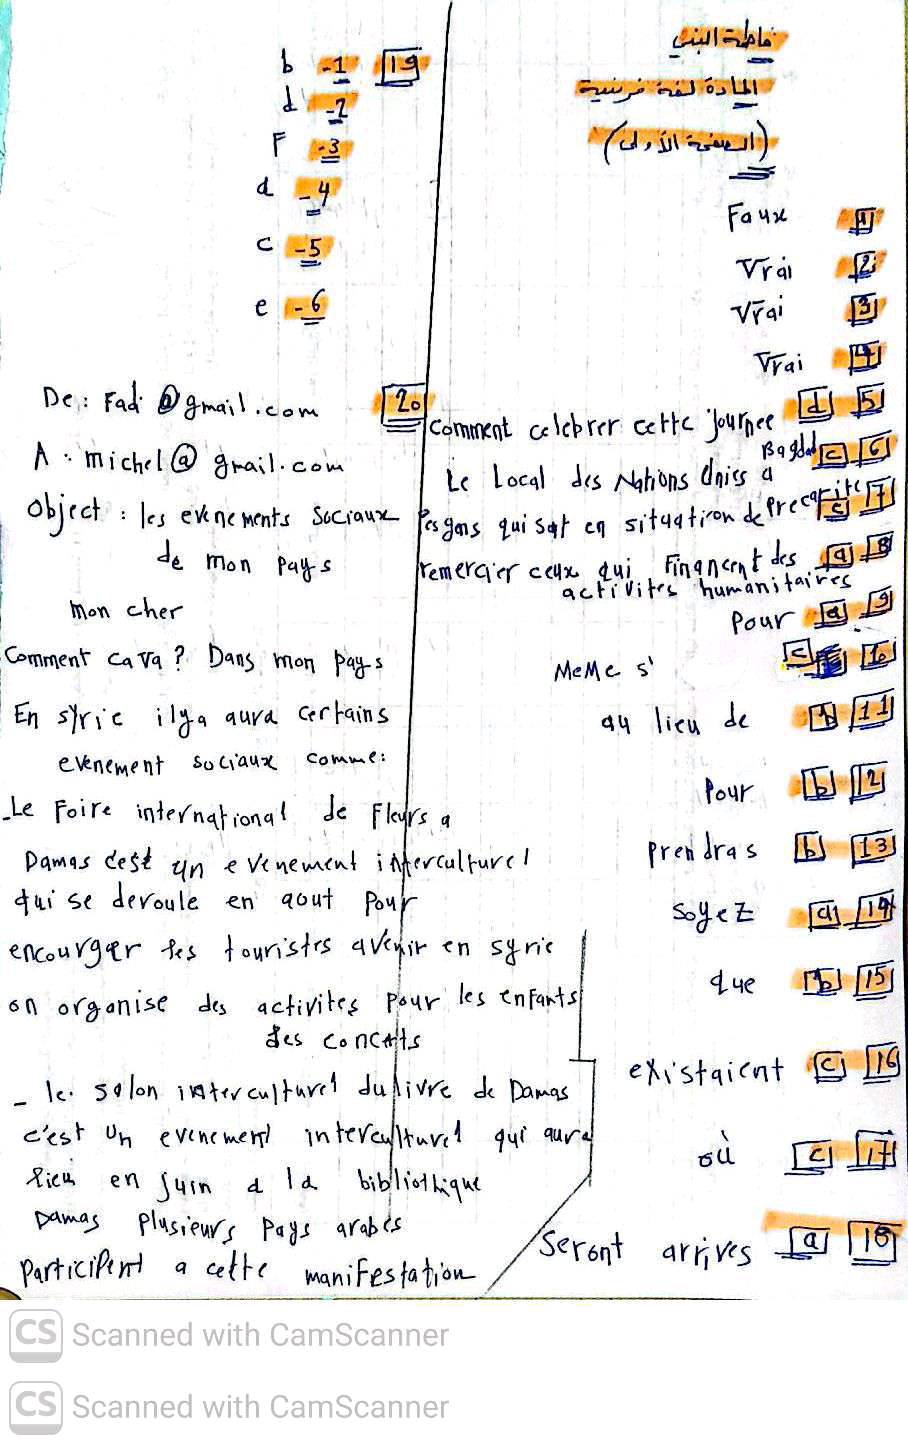 فاطمة البني
المادة لغة فرنسية
(الصفحة الأولى)
1 Faux
2 Vrai
3 Vrai
4 Vrai
5 d Comment celebrer cette journee
6 c Le Local des Nations Unies a Bagdad
7 c les gens qui sont en situation de Precarite
8 a remercier ceux qui Financent des
activites humanitaires
9 a Pour
10 c MeMe s'
11 b au lieu de
12 b Pour
13 b prendras
14 a soyez
15 b que
16 c existaient
17 c où
18 a Seront arrives
19 -1 b
-2 d
-3 F
-4 a
-5 c
-6 e
20 De : Fadi @gmail.com
A : michel@ gmail.com
object : les evenements Sociaux
de mon pays
mon cher
Comment ca va ? Dans mon pays
En syrie ilya aura certains
evenement sociaux comme:
-Le Foire international de Fleurs a
Damas c'est un evenement interculturel
qui se deroule en aout Pour
encourger les touristes avenir en syrie
on organise des activites pour les enfants
des concerts
- le salon interculturel du livre de Damas
c'est un evenement interculturel qui aura
lieu en juin a la bibliothique
Damas plusieurs pays arabes
participent a cette manifestation
CS Scanned with CamScanner
CS Scanned with CamScanner